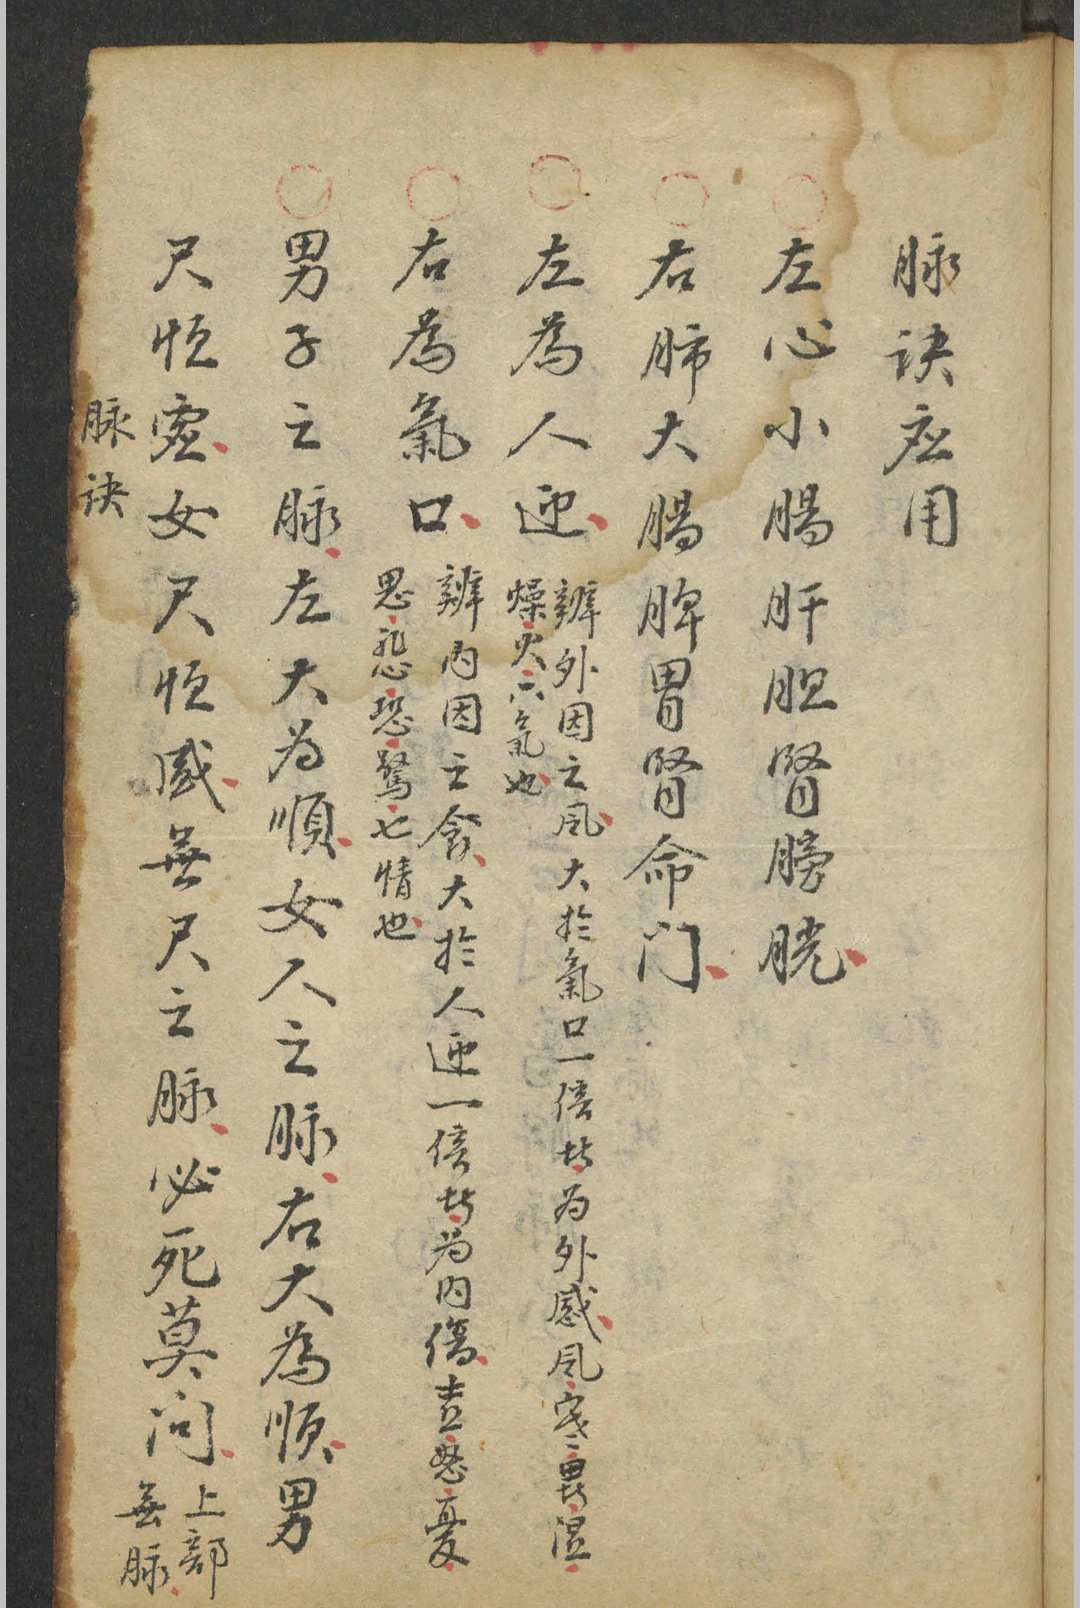 脉訣应用
左心小腸肝胆腎膀胱
右肺大腸脾胃腎命门
左為人迎 辨外因之风大於氣口一倍者为外感风寒暑湿
燥火六氣也
右為氣口 辨内因之食大於人迎一倍者为内傷喜怒憂
思悲恐驚七情也
男子之脉左大为順女人之脉右大為順男
尺恒虚女尺恒盛無尺之脉必死莫问 上部
無脉
脉訣